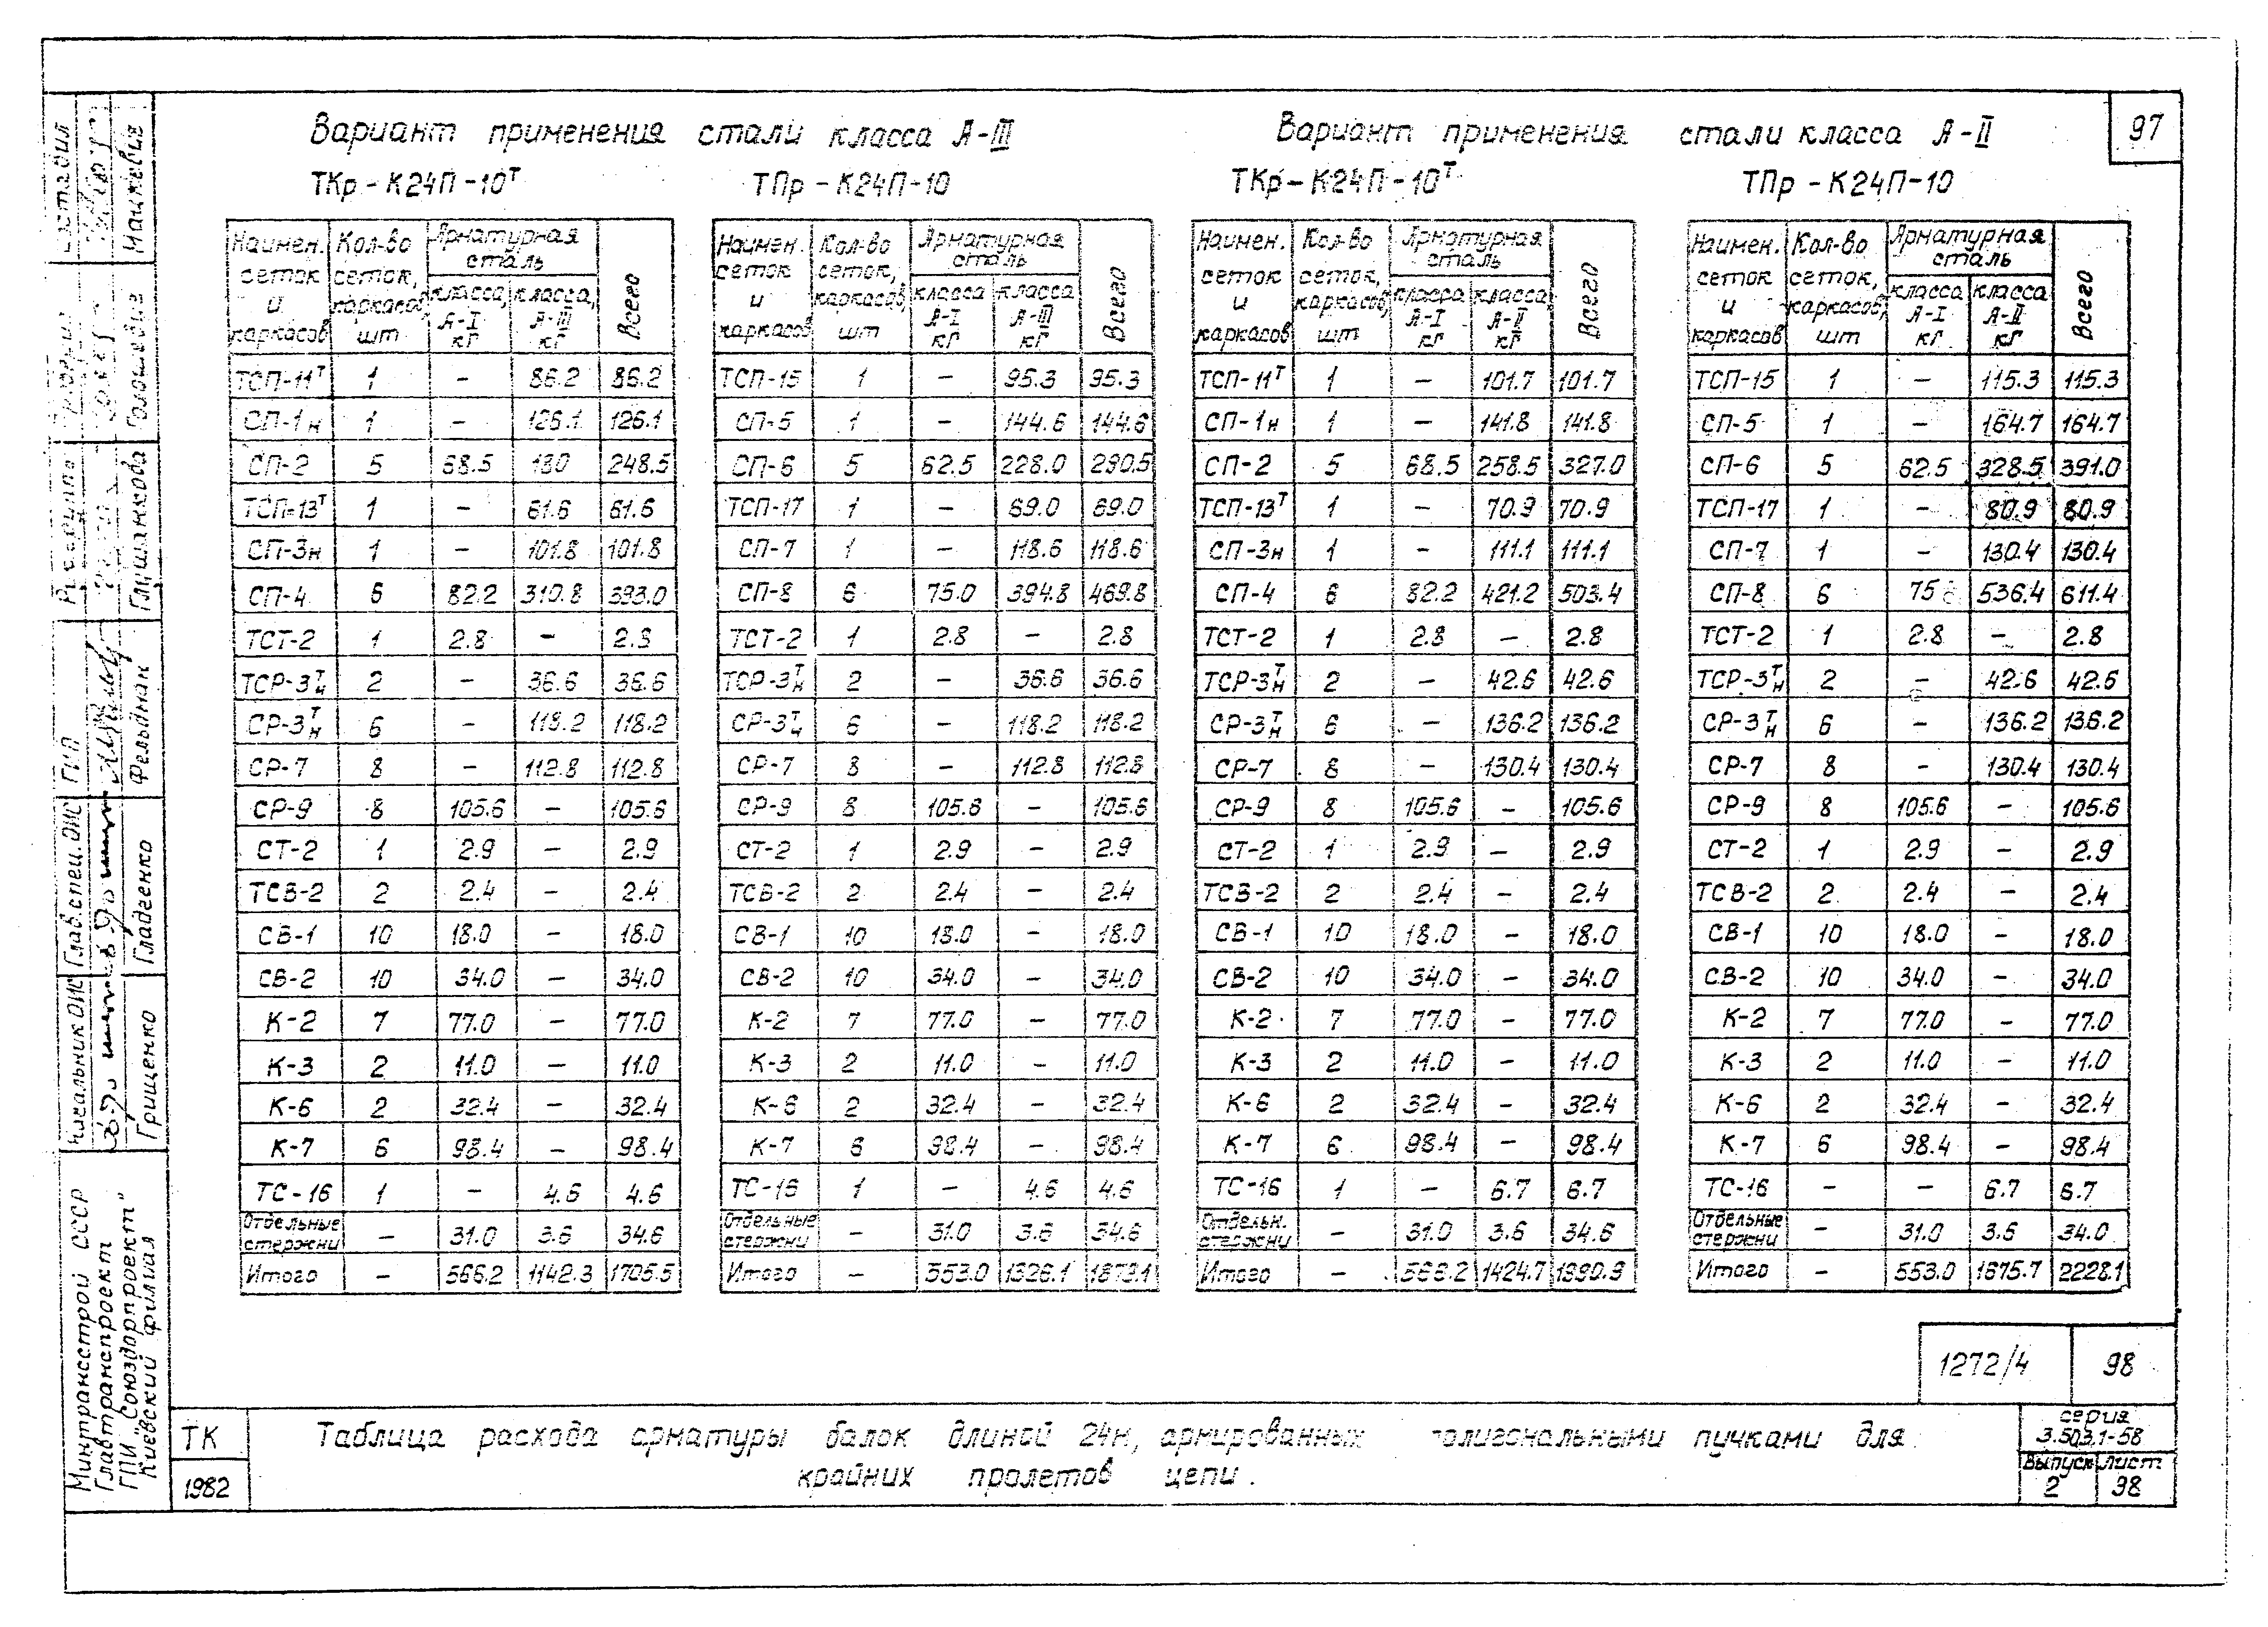 97
Вариант применения стали класса А-III
ТКр-К24П-10Т ТПр-К24П-10
Вариант применения стали класса А-II
ТКр-К24П-10Т ТПр-К24П-10
Наимен. сеток и каркасов Кол-во сеток, каркасов, шт Арматурная сталь класса, А-I кГ класса, А-III кГ Всего
ТСП-11Т 1 – 86.2 86.2
СП-1н 1 – 126.1 126.1
СП-2 5 68.5 180 248.5
ТСП-13Т 1 – 61.6 61.6
СП-3н 1 – 101.8 101.8
СП-4 6 82.2 310.8 393.0
ТСТ-2 1 2.8 – 2.8
ТСР-3Тн 2 – 36.6 36.6
СР-3Тн 6 – 118.2 118.2
СР-7 8 – 112.8 112.8
СР-9 8 105.6 – 105.6
СТ-2 1 2.9 – 2.9
ТСВ-2 2 2.4 – 2.4
СВ-1 10 18.0 – 18.0
СВ-2 10 34.0 – 34.0
К-2 7 77.0 – 77.0
К-3 2 11.0 – 11.0
К-6 2 32.4 – 32.4
К-7 6 98.4 – 98.4
ТС-16 1 – 4.6 4.6
Отдельные стержни – 31.0 3.6 34.6
Итого – 566.2 1142.3 1705.5
Наимен. сеток и каркасов Кол-во сеток, каркасов, шт Арматурная сталь класса А-I кГ класса А-III кГ Всего
ТСП-15 1 – 95.3 95.3
СП-5 1 – 144.6 144.6
СП-6 5 62.5 228.0 290.5
ТСП-17 1 – 69.0 69.0
СП-7 1 – 118.6 118.6
СП-8 6 75.0 394.8 469.8
ТСТ-2 1 2.8 – 2.8
ТСР-3Тн 2 – 36.6 36.6
СР-3Тн 6 – 118.2 118.2
СР-7 8 – 112.8 112.8
СР-9 8 105.6 – 105.6
СТ-2 1 2.9 – 2.9
ТСВ-2 2 2.4 – 2.4
СВ-1 10 18.0 – 18.0
СВ-2 10 34.0 – 34.0
К-2 7 77.0 – 77.0
К-3 2 11.0 – 11.0
К-6 2 32.4 – 32.4
К-7 6 98.4 – 98.4
ТС-16 1 – 4.6 4.6
Отдельные стержни – 31.0 3.6 34.6
Итого – 553.0 1326.1 1879.1
Наимен. сеток и каркасов Кол-во сеток, каркасов, шт Арматурная сталь класса А-I кГ класса, А-II кГ Всего
ТСП-11Т 1 – 101.7 101.7
СП-1н 1 – 141.8 141.8
СП-2 5 68.5 258.5 327.0
ТСП-13Т 1 – 70.9 70.9
СП-3н 1 – 111.1 111.1
СП-4 6 82.2 421.2 503.4
ТСТ-2 1 2.8 – 2.8
ТСР-3Тн 2 – 42.6 42.6
СР-3Тн 6 – 136.2 136.2
СР-7 8 – 130.4 130.4
СР-9 8 105.6 – 105.6
СТ-2 1 2.9 – 2.9
ТСВ-2 2 2.4 – 2.4
СВ-1 10 18.0 – 18.0
СВ-2 10 34.0 – 34.0
К-2 7 77.0 – 77.0
К-3 2 11.0 – 11.0
К-6 2 32.4 – 32.4
К-7 6 98.4 – 98.4
ТС-16 1 – 6.7 6.7
Отдельн. стержни – 31.0 3.6 34.6
Итого – 566.2 1424.7 1990.9
Наимен. сеток и каркасов Кол-во сеток, каркасов, шт Арматурная сталь класса А-I кГ класса А-II кГ Всего
ТСП-15 1 – 115.3 115.3
СП-5 1 – 164.7 164.7
СП-6 5 62.5 328.5 391.0
ТСП-17 1 – 80.9 80.9
СП-7 1 – 130.4 130.4
СП-8 6 75 536.4 611.4
ТСТ-2 1 2.8 – 2.8
ТСР-3Тн 2 – 42.6 42.6
СР-3Тн 6 – 136.2 136.2
СР-7 8 – 130.4 130.4
СР-9 8 105.6 – 105.6
СТ-2 1 2.9 – 2.9
ТСВ-2 2 2.4 – 2.4
СВ-1 10 18.0 – 18.0
СВ-2 10 34.0 – 34.0
К-2 7 77.0 – 77.0
К-3 2 11.0 – 11.0
К-6 2 32.4 – 32.4
К-7 6 98.4 – 98.4
ТС-16 – – 6.7 6.7
Отдельные стержни – 31.0 3.6 34.0
Итого – 553.0 1675.7 2228.1
1272/4 98
ТК
1982
Таблица расхода арматуры балок длиной 24м, армированных полигональными пучками для
крайних пролетов цепи.
серия
3.503.1-58
Выпуск Лист
2 98
Минтрансстрой СССР
Главтранспроект
ГПИ "Союздорпроект"
Киевский филиал
Начальник ОИС Грищенко
Глав.спец.ОИС Гладеенко
ГИП Фельдман
Глушакова
Мацкевич